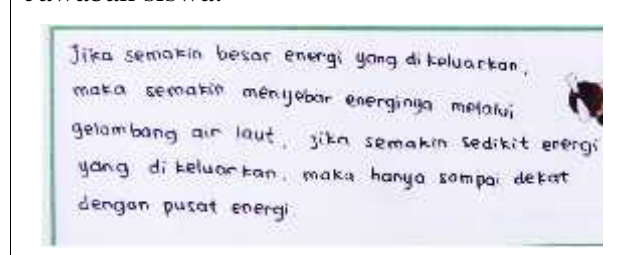 Jawaban siswa:
Jika semakin besar energi yang di keluarkan,
maka semakin menyebar energinya melalui
gelombang air laut, jika semakin sedikit energi
yang di keluarkan, maka hanya sampai dekat
dengan pusat energi